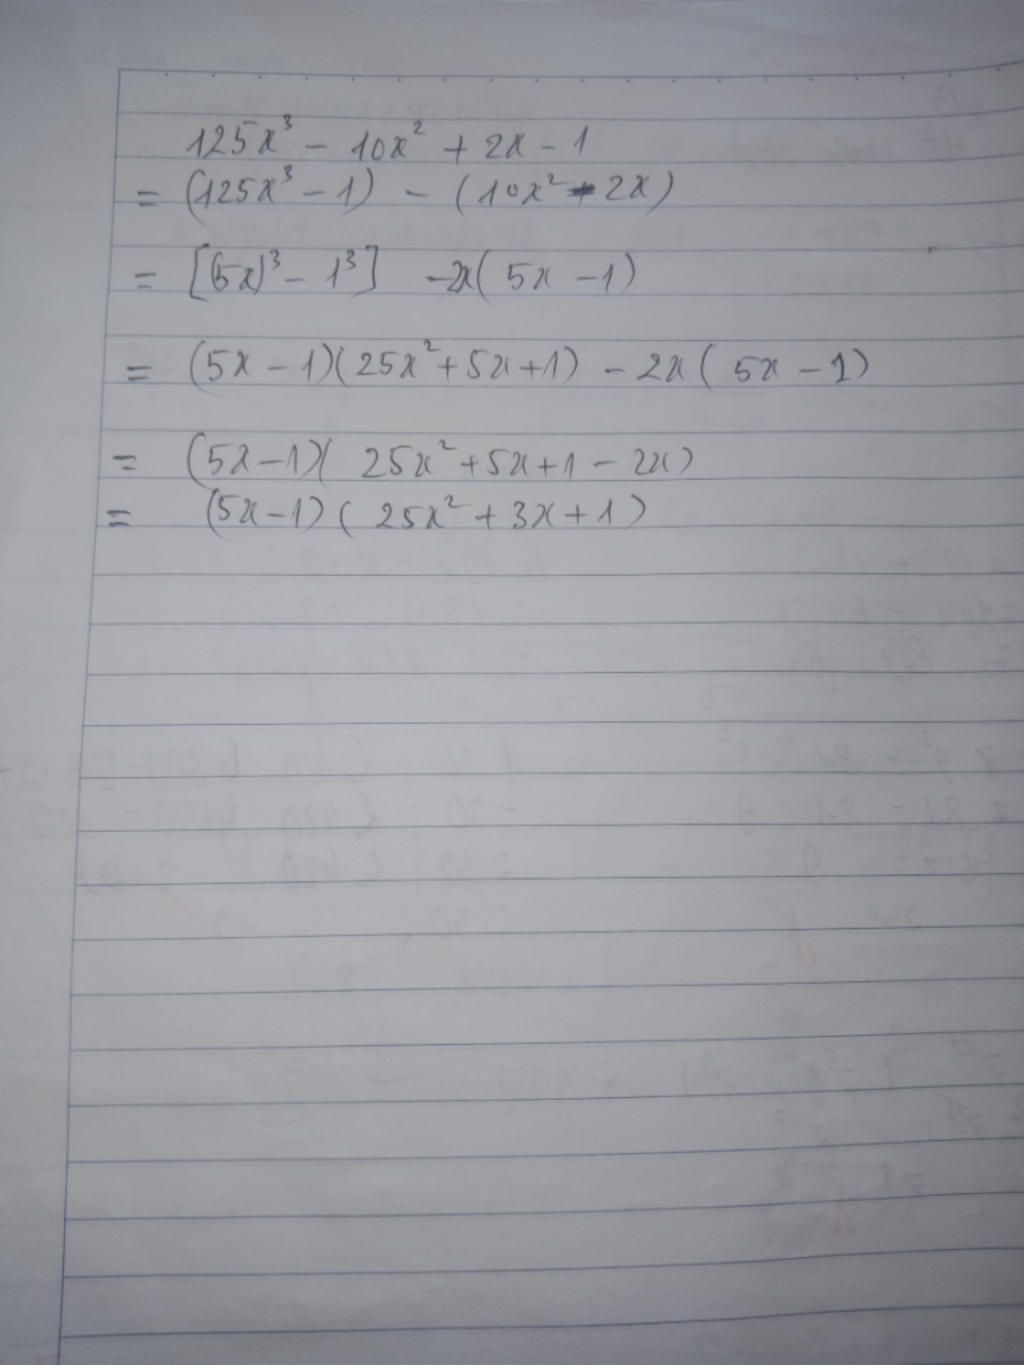 125x³ - 10x² + 2x - 1
= (125x³ - 1) - (10x² - 2x)
= [(5x)³ - 1³] -2x( 5x - 1)
= (5x - 1)(25x² + 5x + 1) - 2x( 5x - 1)
= (5x - 1)( 25x² + 5x + 1 - 2x)
= (5x - 1)( 25x² + 3x + 1)